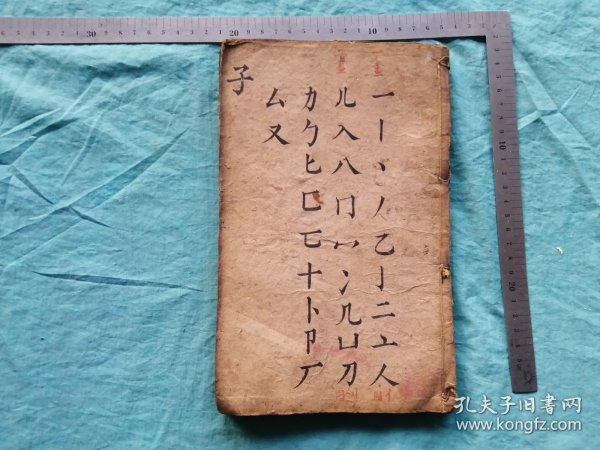 一丨丶丿乙亅二亠人
儿入八冂冖冫几凵刀
力勹匕匚匸十卜卩厂
厶又
子
孔夫子旧書网
www.kongfz.com